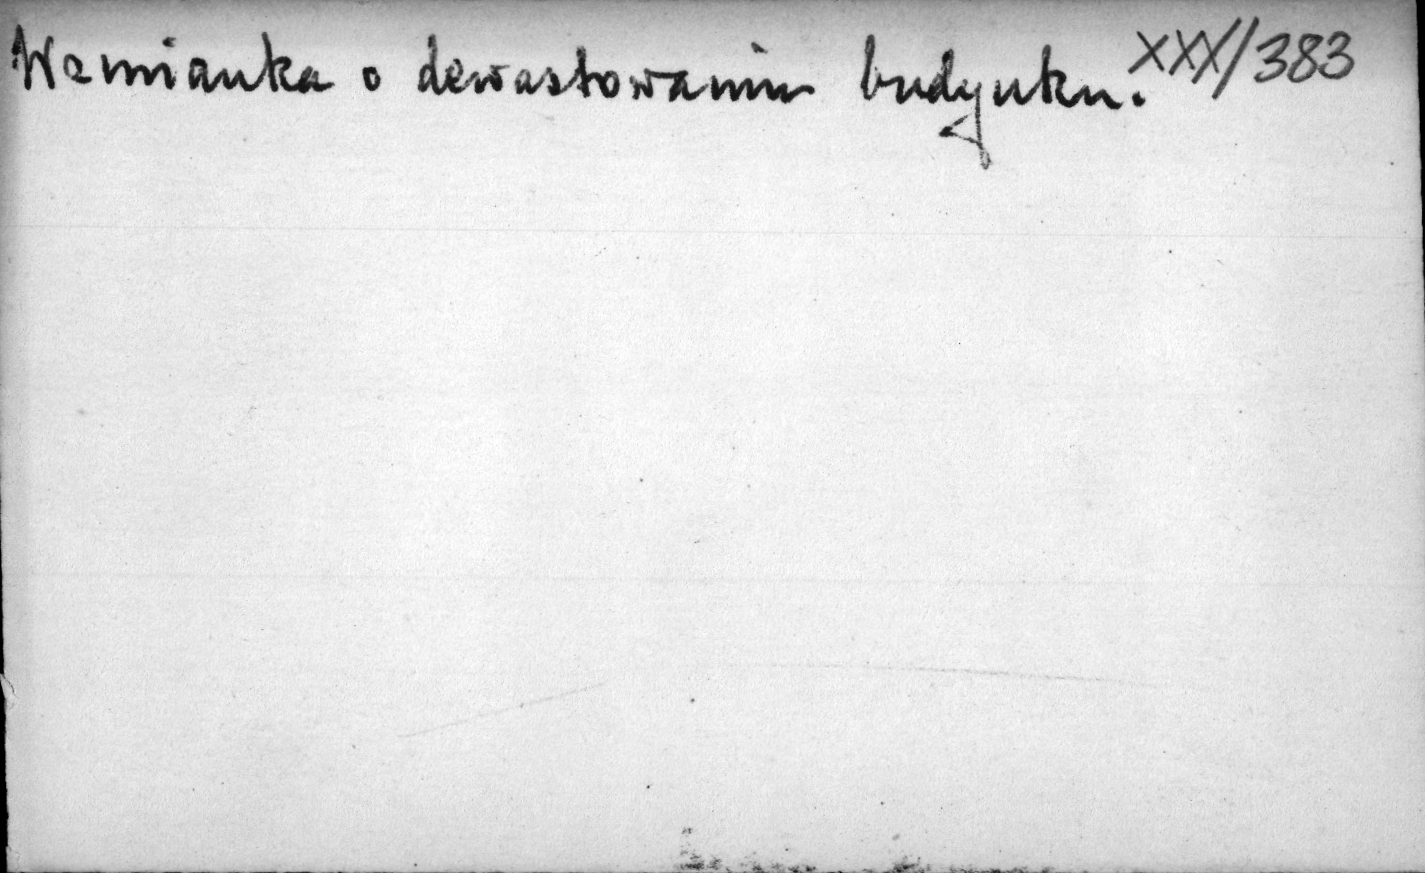 Wzmianka o dewastowaniu budynku. XXX/383